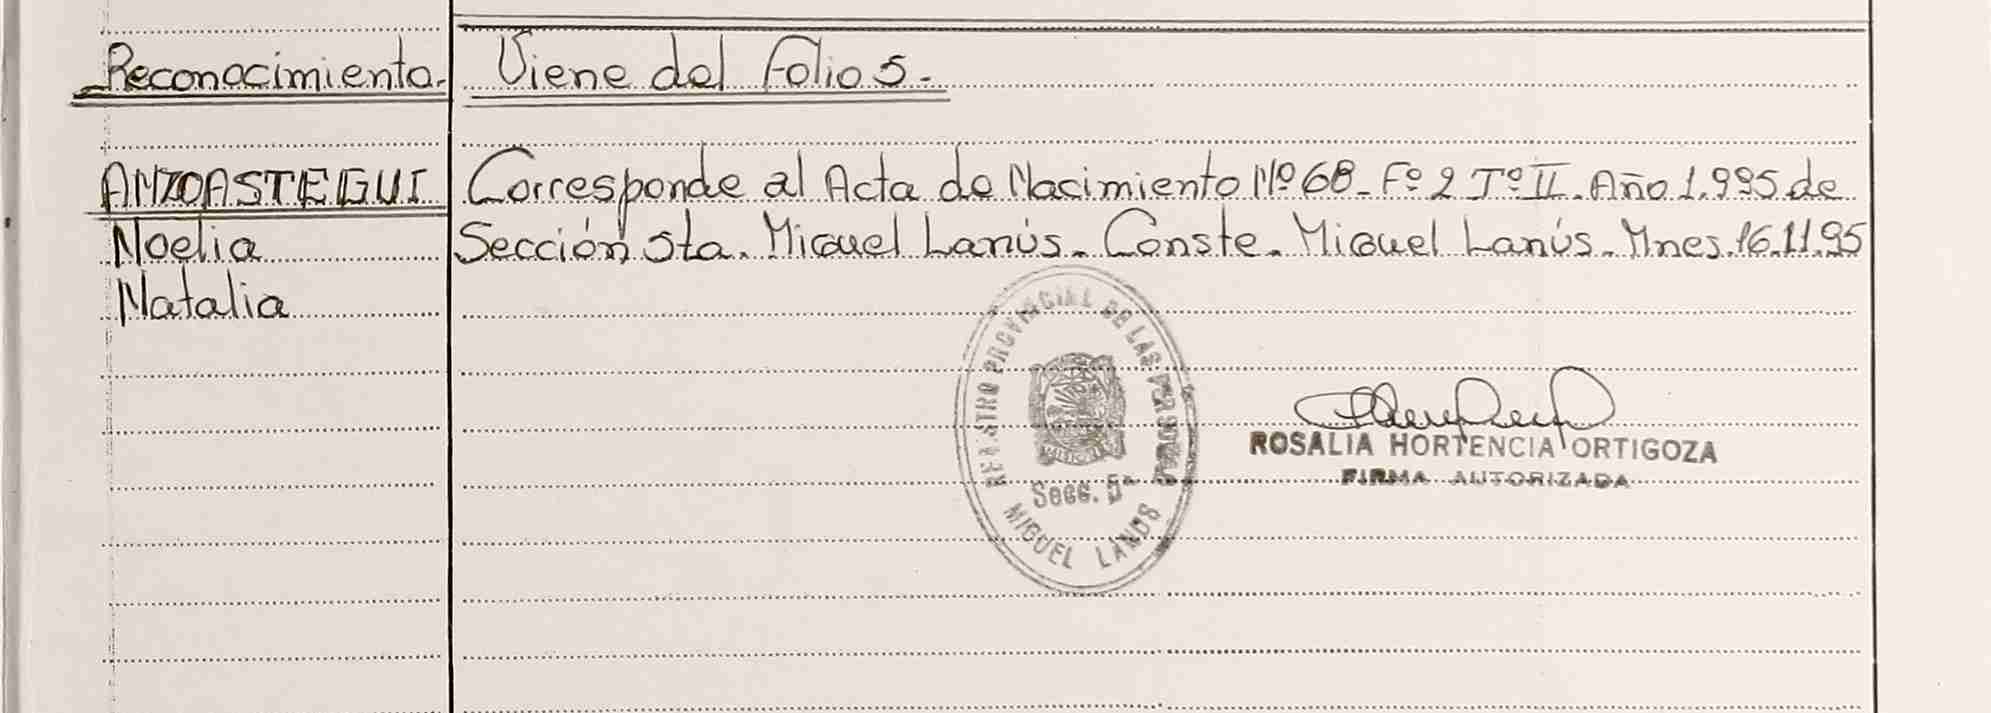 Reconocimiento. Viene del Folio 5.-
ANZOASTEGUI Corresponde al Acta de Nacimiento Nº 68- Fº 2 Tº II. Año 1.995 de
Noelia Sección 5ta. Miguel Lanús. Conste. Miguel Lanús. Mnes. 16.11.95
Natalia
REGISTRO PROVINCIAL DE LAS PERSONAS
Secc. 5ª
MIGUEL LANUS
ROSALIA HORTENCIA ORTIGOZA
FIRMA AUTORIZADA